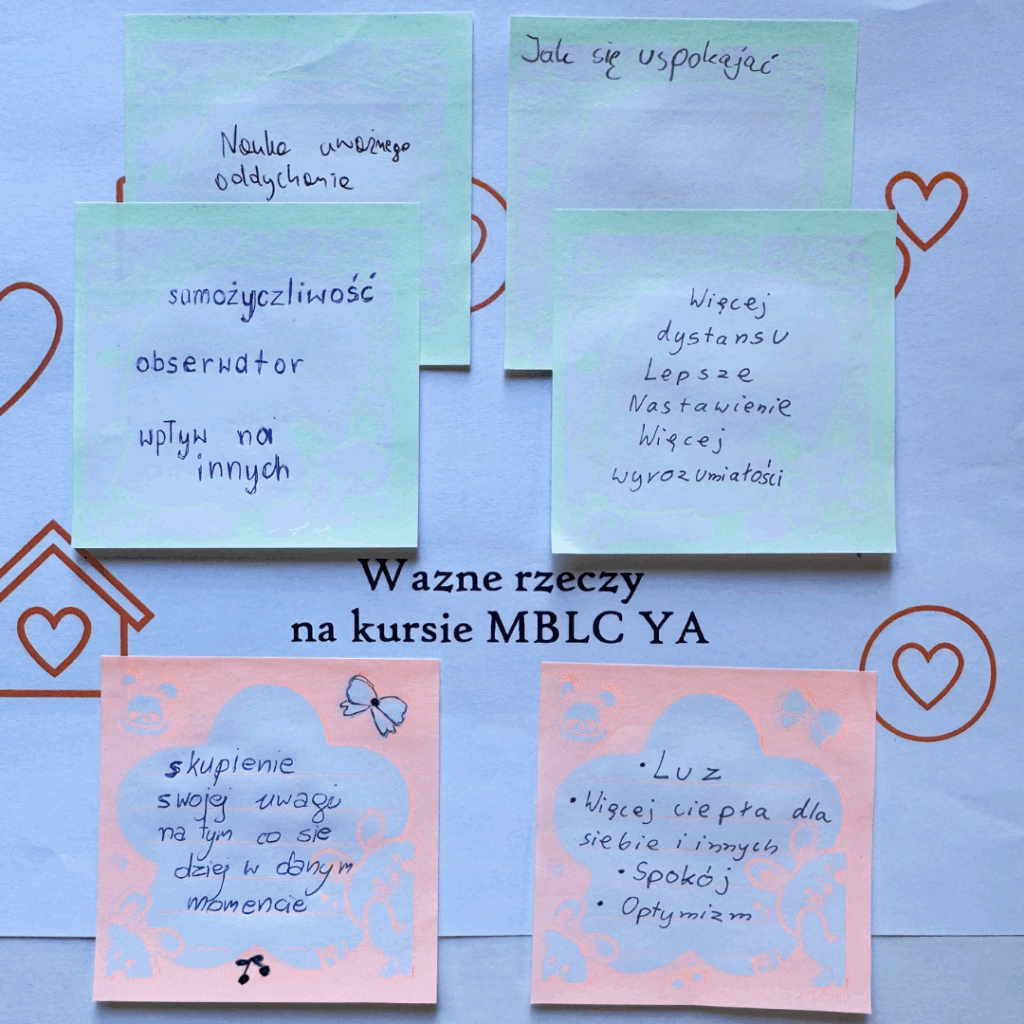 Nauka uważnego
oddychania
Jak się uspokajać
samożyczliwość
obserwator
wpływ na
innych
Więcej
dystansu
Lepsze
Nastawienie
Więcej
wyrozumiałości
Wazne rzeczy
na kursie MBLC YA
skupienie
swojej uwagi
na tym co sie
dziej w danym
momencie
• Luz
• Więcej ciepła dla
siebie i innych
• Spokój
• Optymizm